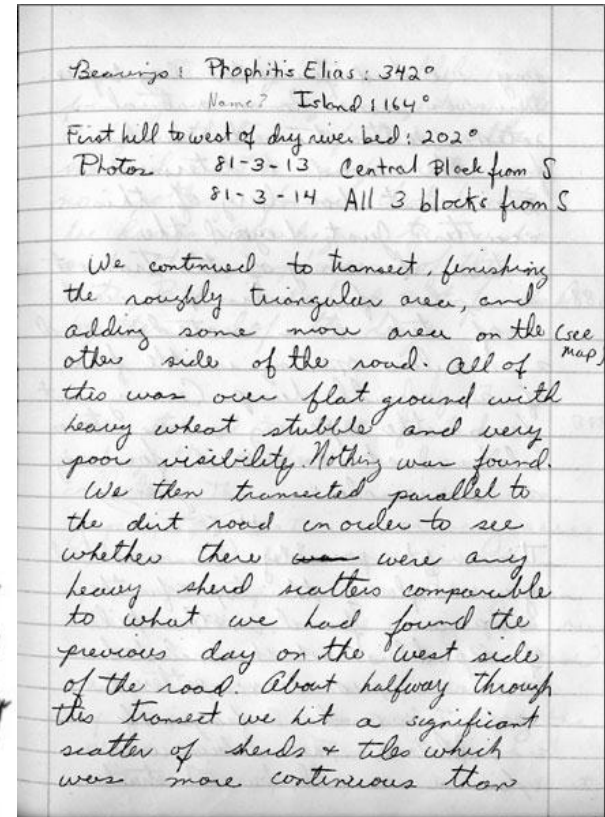 Bearings: Prophitis Elias: 342°
Name? Island: 164°
First hill to west of dry river bed: 202°
Photos 81-3-13 Central Block from S
81-3-14 All 3 blocks from S
We continued to transect, finishing
the roughly triangular area, and
adding some more area on the (see
map)
other side of the road. All of
this was over flat ground with
heavy wheat stubble and very
poor visibility. Nothing was found.
We then transected parallel to
the dirt road in order to see
whether there were any
heavy sherd scatters comparable
to what we had found the
previous day on the west side
of the road. About halfway through
this transect we hit a significant
scatter of sherds + tiles which
was more continuous than